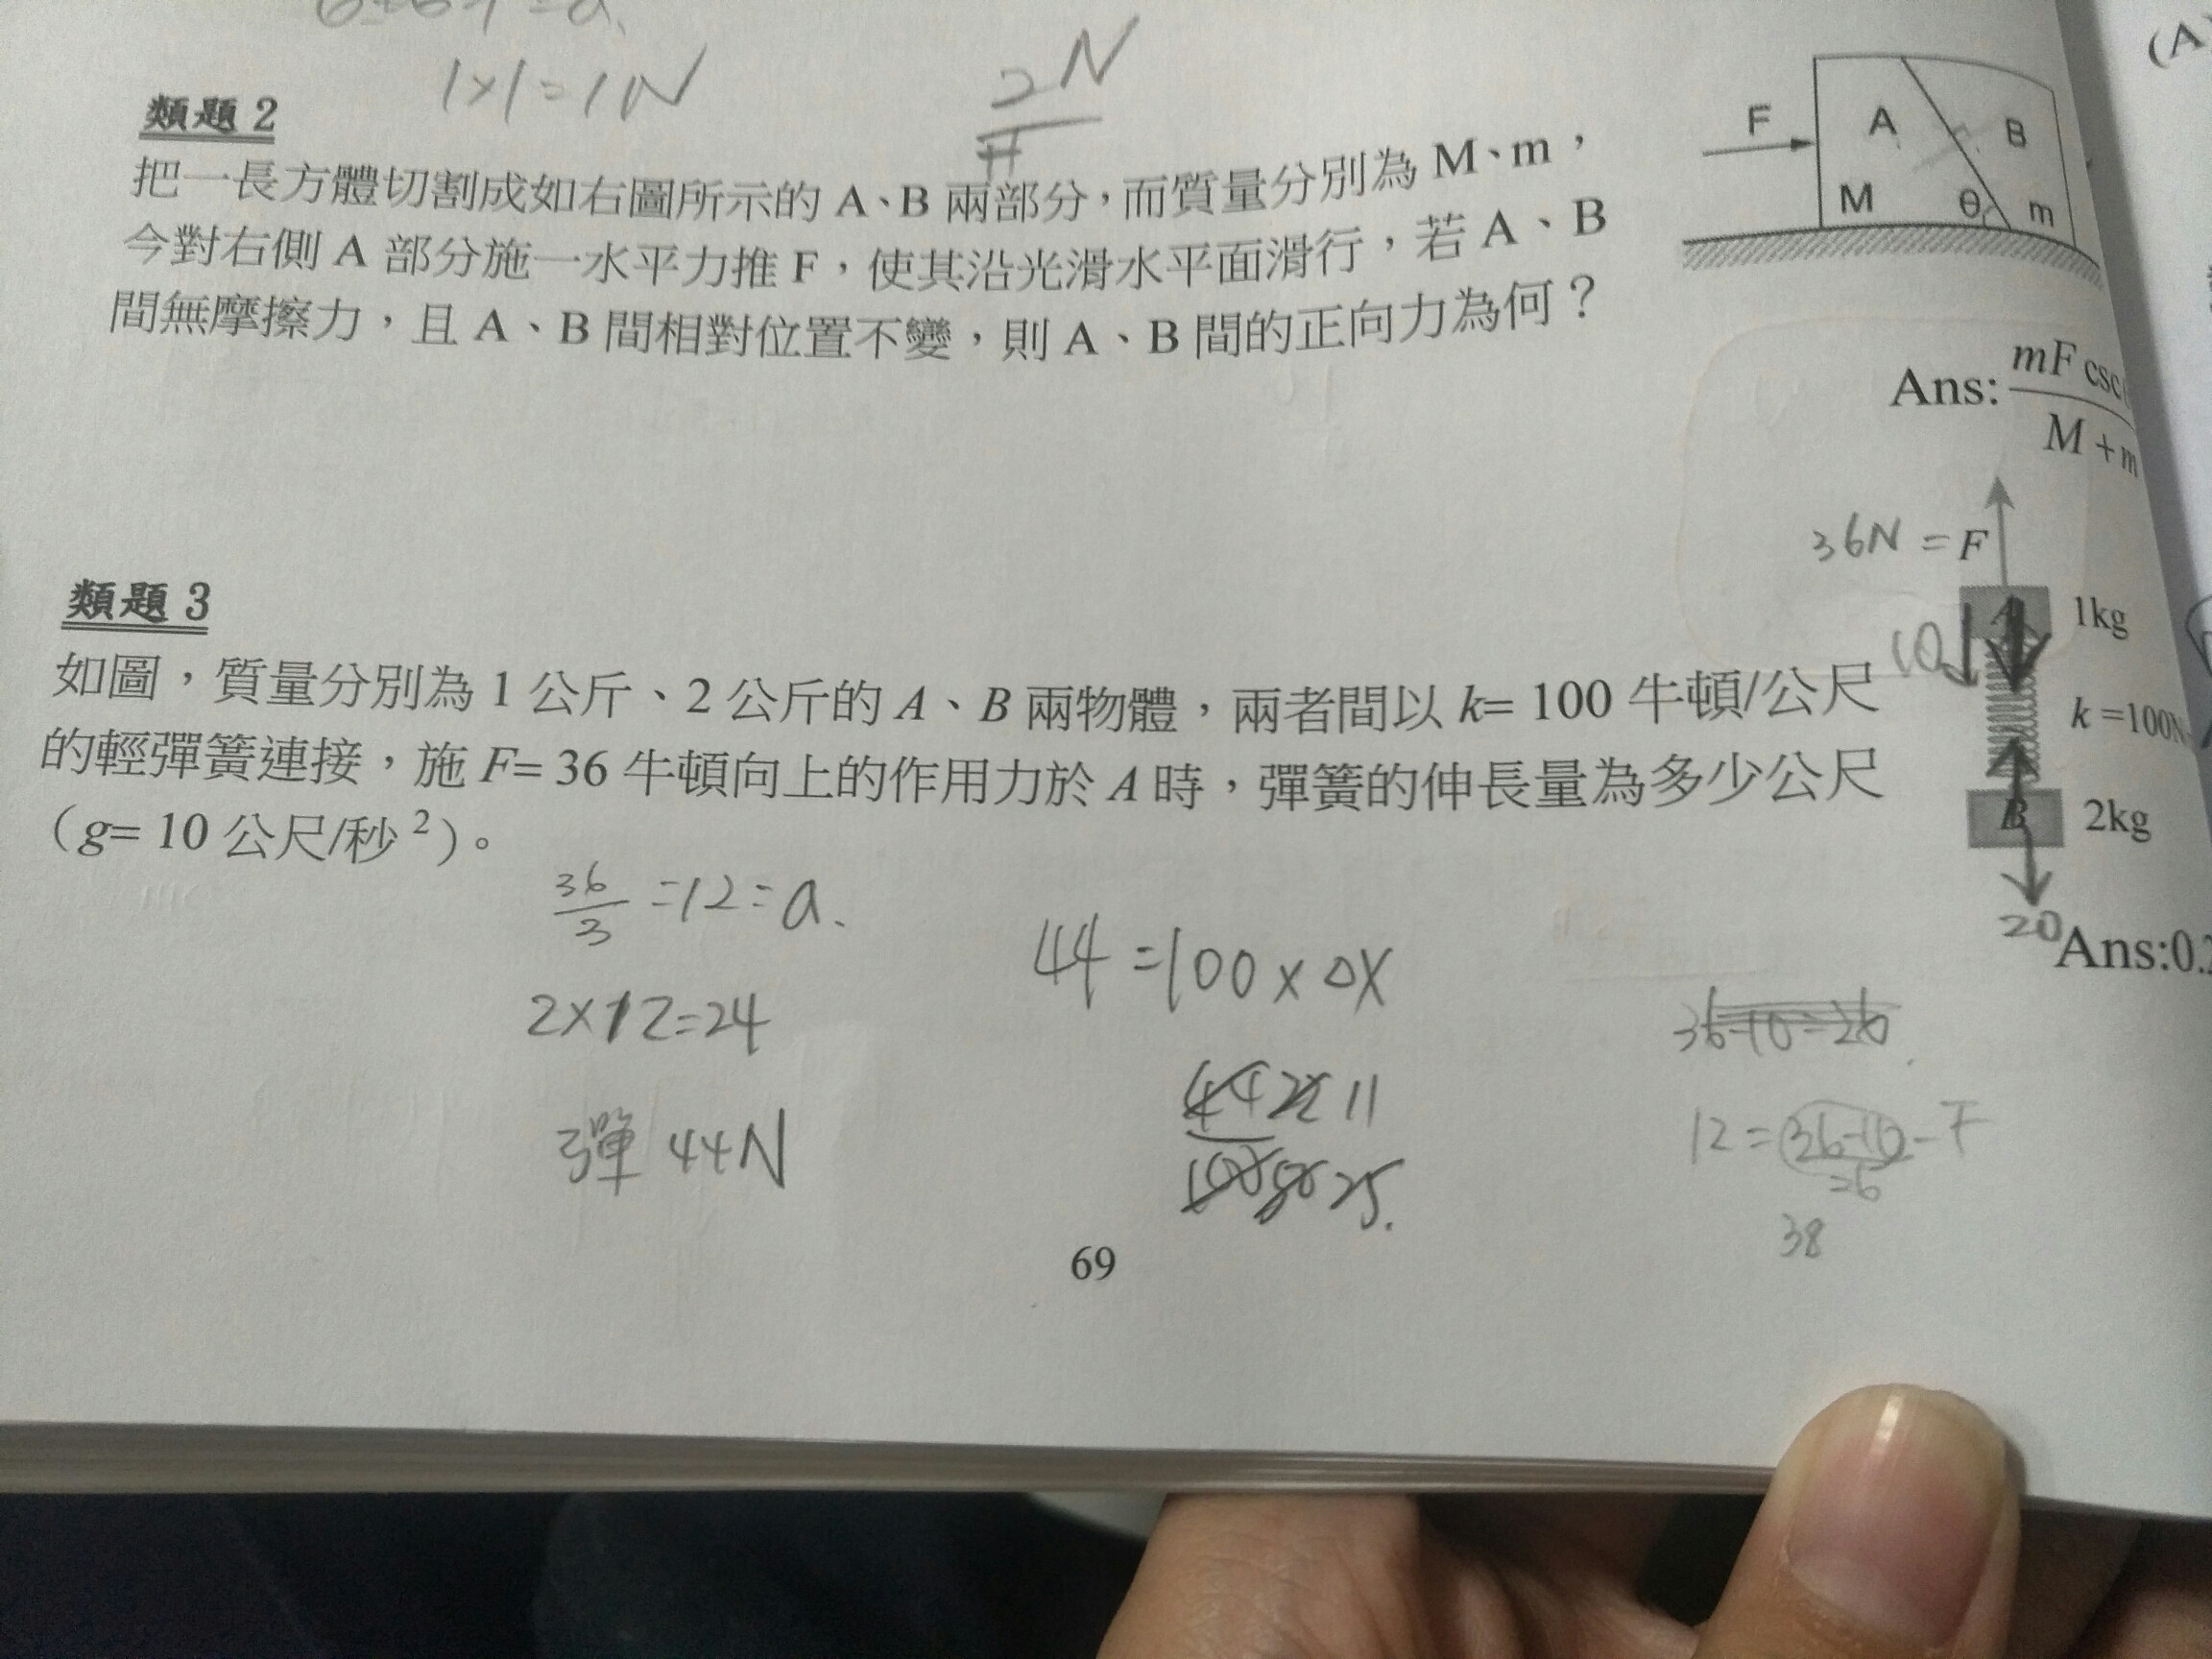 1×1=1N
2N
類題 2
把一長方體切割成如右圖所示的 A、B 兩部分，而質量分別為 M、m，
今對右側 A 部分施一水平力推 F，使其沿光滑水平面滑行，若 A、B
間無摩擦力，且 A、B 間相對位置不變，則 A、B 間的正向力為何？
F
A
B
M
θ
m
Ans: mF csc
M + m
類題 3
如圖，質量分別為 1 公斤、2 公斤的 A、B 兩物體，兩者間以 k= 100 牛頓/公尺
的輕彈簧連接，施 F= 36 牛頓向上的作用力於 A 時，彈簧的伸長量為多少公尺
（g= 10 公尺/秒²）。
36N = F
A
1kg
10
k =100N
B
2kg
20
Ans:0.
36/3 =12=a.
2×12=24
彈 44N
44=100×△X
44 22 11
100 50 25.
36-10=26
12=36-10-F
=26
38
69
(A